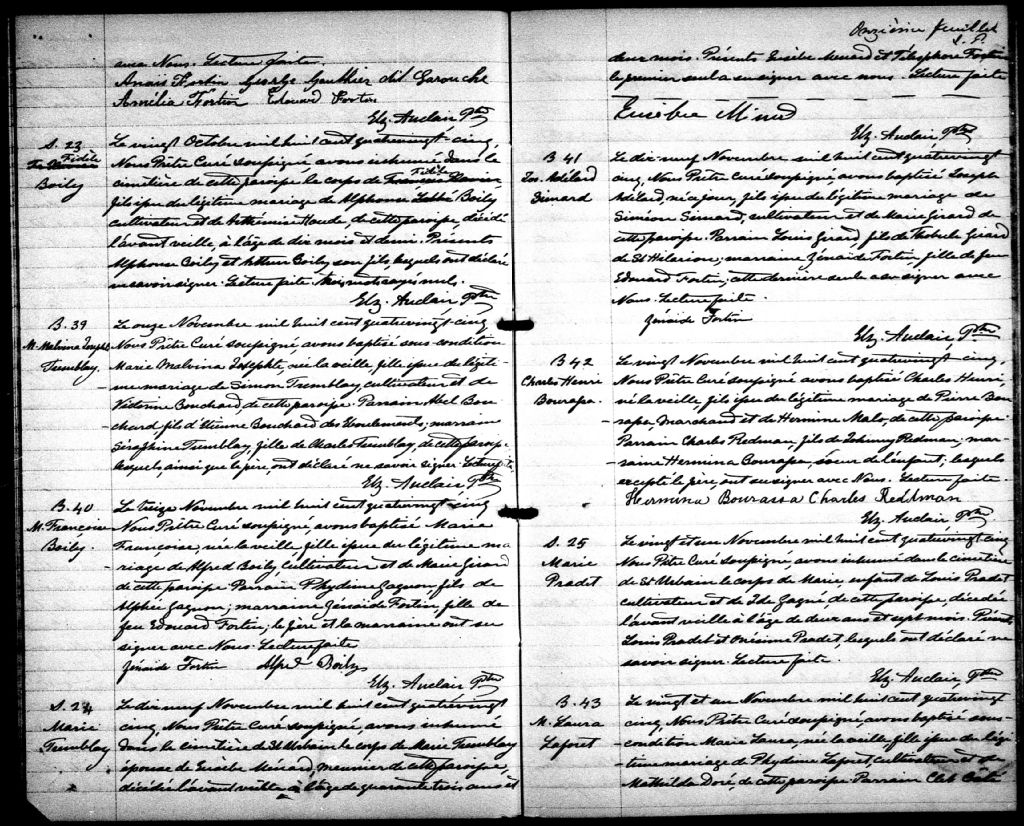 avec Nous. Lecture faite.
Anaïs Fortin George Gauthier dit Larouche
Amélia Fortin Edouard Fortin
Elz. Auclair Ptre
S. 23
Fidèle
Boily
Le vingt Octobre mil huit cent quatrevingt-cinq,
Nous Prêtre Curé soussigné, avons inhumé dans le
cimetière de cette paroisse le corps de Fidèle
fils issu du légitime mariage de Alphonse Boily
cultivateur et de de cette paroisse, décédé
l'avant veille, à l'âge de dix mois et demi. Présents
Alphonse Boily et Arthur Boily son fils, lesquels ont déclaré
ne savoir signer. Lecture faite. Trois mots rayés nuls.
Elz. Auclair Ptre
B. 39
M. Malvina Joseph
Tremblay.
Le onze Novembre mil huit cent quatrevingt-cinq
Nous Prêtre Curé soussigné, avons baptisé sous condition
Marie Malvina Josephte, née la veille, fille issue du légiti-
me mariage de Simon Tremblay, cultivateur et de
Victorine Bouchard, de cette paroisse. Parrain Abel Bou-
chard fils d'Etienne Bouchard des Eboulements; marraine
Séraphine Tremblay, fille de Charles Tremblay, de cette paroisse
lesquels, ainsi que le père, ont déclaré ne savoir signer. Lecture faite
Elz. Auclair Ptre
B. 40
M. Françoise
Boily.
Le treize Novembre mil huit cent quatrevingt-cinq
Nous Prêtre Curé soussigné, avons baptisé Marie
Françoise, née la veille, fille issue du légitime ma-
riage de Alfred Boily, Cultivateur et de Marie Girard
de cette paroisse. Parrain Phydime Gagnon, fils de
Alphée Gagnon; marraine Zénaïde Fortin, fille de
feu Edouard Fortin; le père et la marraine ont su
signer avec Nous. Lecture faite
Zénaïde Fortin Alfred Boily
Elz. Auclair Ptre
S. 24
Marie
Tremblay
Le dix neuf Novembre mil huit cent quatrevingt
cinq, Nous Prêtre Curé soussigné, avons inhumé
dans le cimetière de St Urbain le corps de Marie Tremblay
épouse de Eusèbe Ménard, meunier de cette paroisse,
décédée l'avant veille à l'âge de quarante trois ans et
Onzième feuillet
deux mois. Présents Eusèbe Menard et Télesphore Fortin
le premier seul a su signer avec nous. Lecture faite
Elz. Auclair, Ptre
B 41
Jos. Adélard
Simard
Le dix neuf Novembre mil huit cent quatrevingt
cinq, Nous Prêtre Curé soussigné, avons baptisé Joseph
Adélard, né ce jour, fils issu du légitime mariage de
Siméon Simard, cultivateur et de Marie Girard de
cette paroisse. Parrain Louis Girard, fils de Thibule Girard
de St Hilarion; marraine Zénaïde Fortin, fille de feu
Edouard Fortin; cette dernière seule a su signer avec
Nous. Lecture faite.
Zénaïde Fortin
Elz. Auclair, Ptre
B 42
Charles Henri
Bourassa.
Le vingt Novembre mil huit cent quatrevingt-cinq,
Nous Prêtre Curé soussigné avons baptisé Charles Henri,
né la veille, fils issu du légitime mariage de Pierre Bou-
rassa, Marchand et de Hermine Malo, de cette paroisse
Parrain Charles Redman, fils de Johnny Redman; mar-
raine Hermina Bourassa, soeur de l'enfant; lesquels
excepté le père, ont signer avec Nous. Lecture faite.
Hermina Bourassa Charles Reddman
Elz. Auclair, Ptre
S. 25
Marie
Pradet
Le vingt et un Novembre mil huit cent quatrevingt cinq
Nous Prêtre Curé soussigné, avons inhumé dans le cimetière
de St Urbain le corps de Marie, enfant de Louis Pradet
cultivateur et de Ide Gagné, de cette paroisse, décédée
l'avant veille à l'âge de deux ans et sept mois. Présents
Louis Pradet et Onésime Pradet, lesquels ont déclaré ne
savoir signer. Lecture faite.
Elz. Auclair, Ptre
B. 43
M. Laura
Laforet
Le vingt et un Novembre mil huit cent quatrevingt
cinq, Nous Prêtre Curé soussigné, avons baptisé sous-
condition Marie Laura, née la veille, fille issue du légi-
time mariage de Phydime Laforet, cultivateur et de
Mathilda Doré, de cette paroisse. Parrain